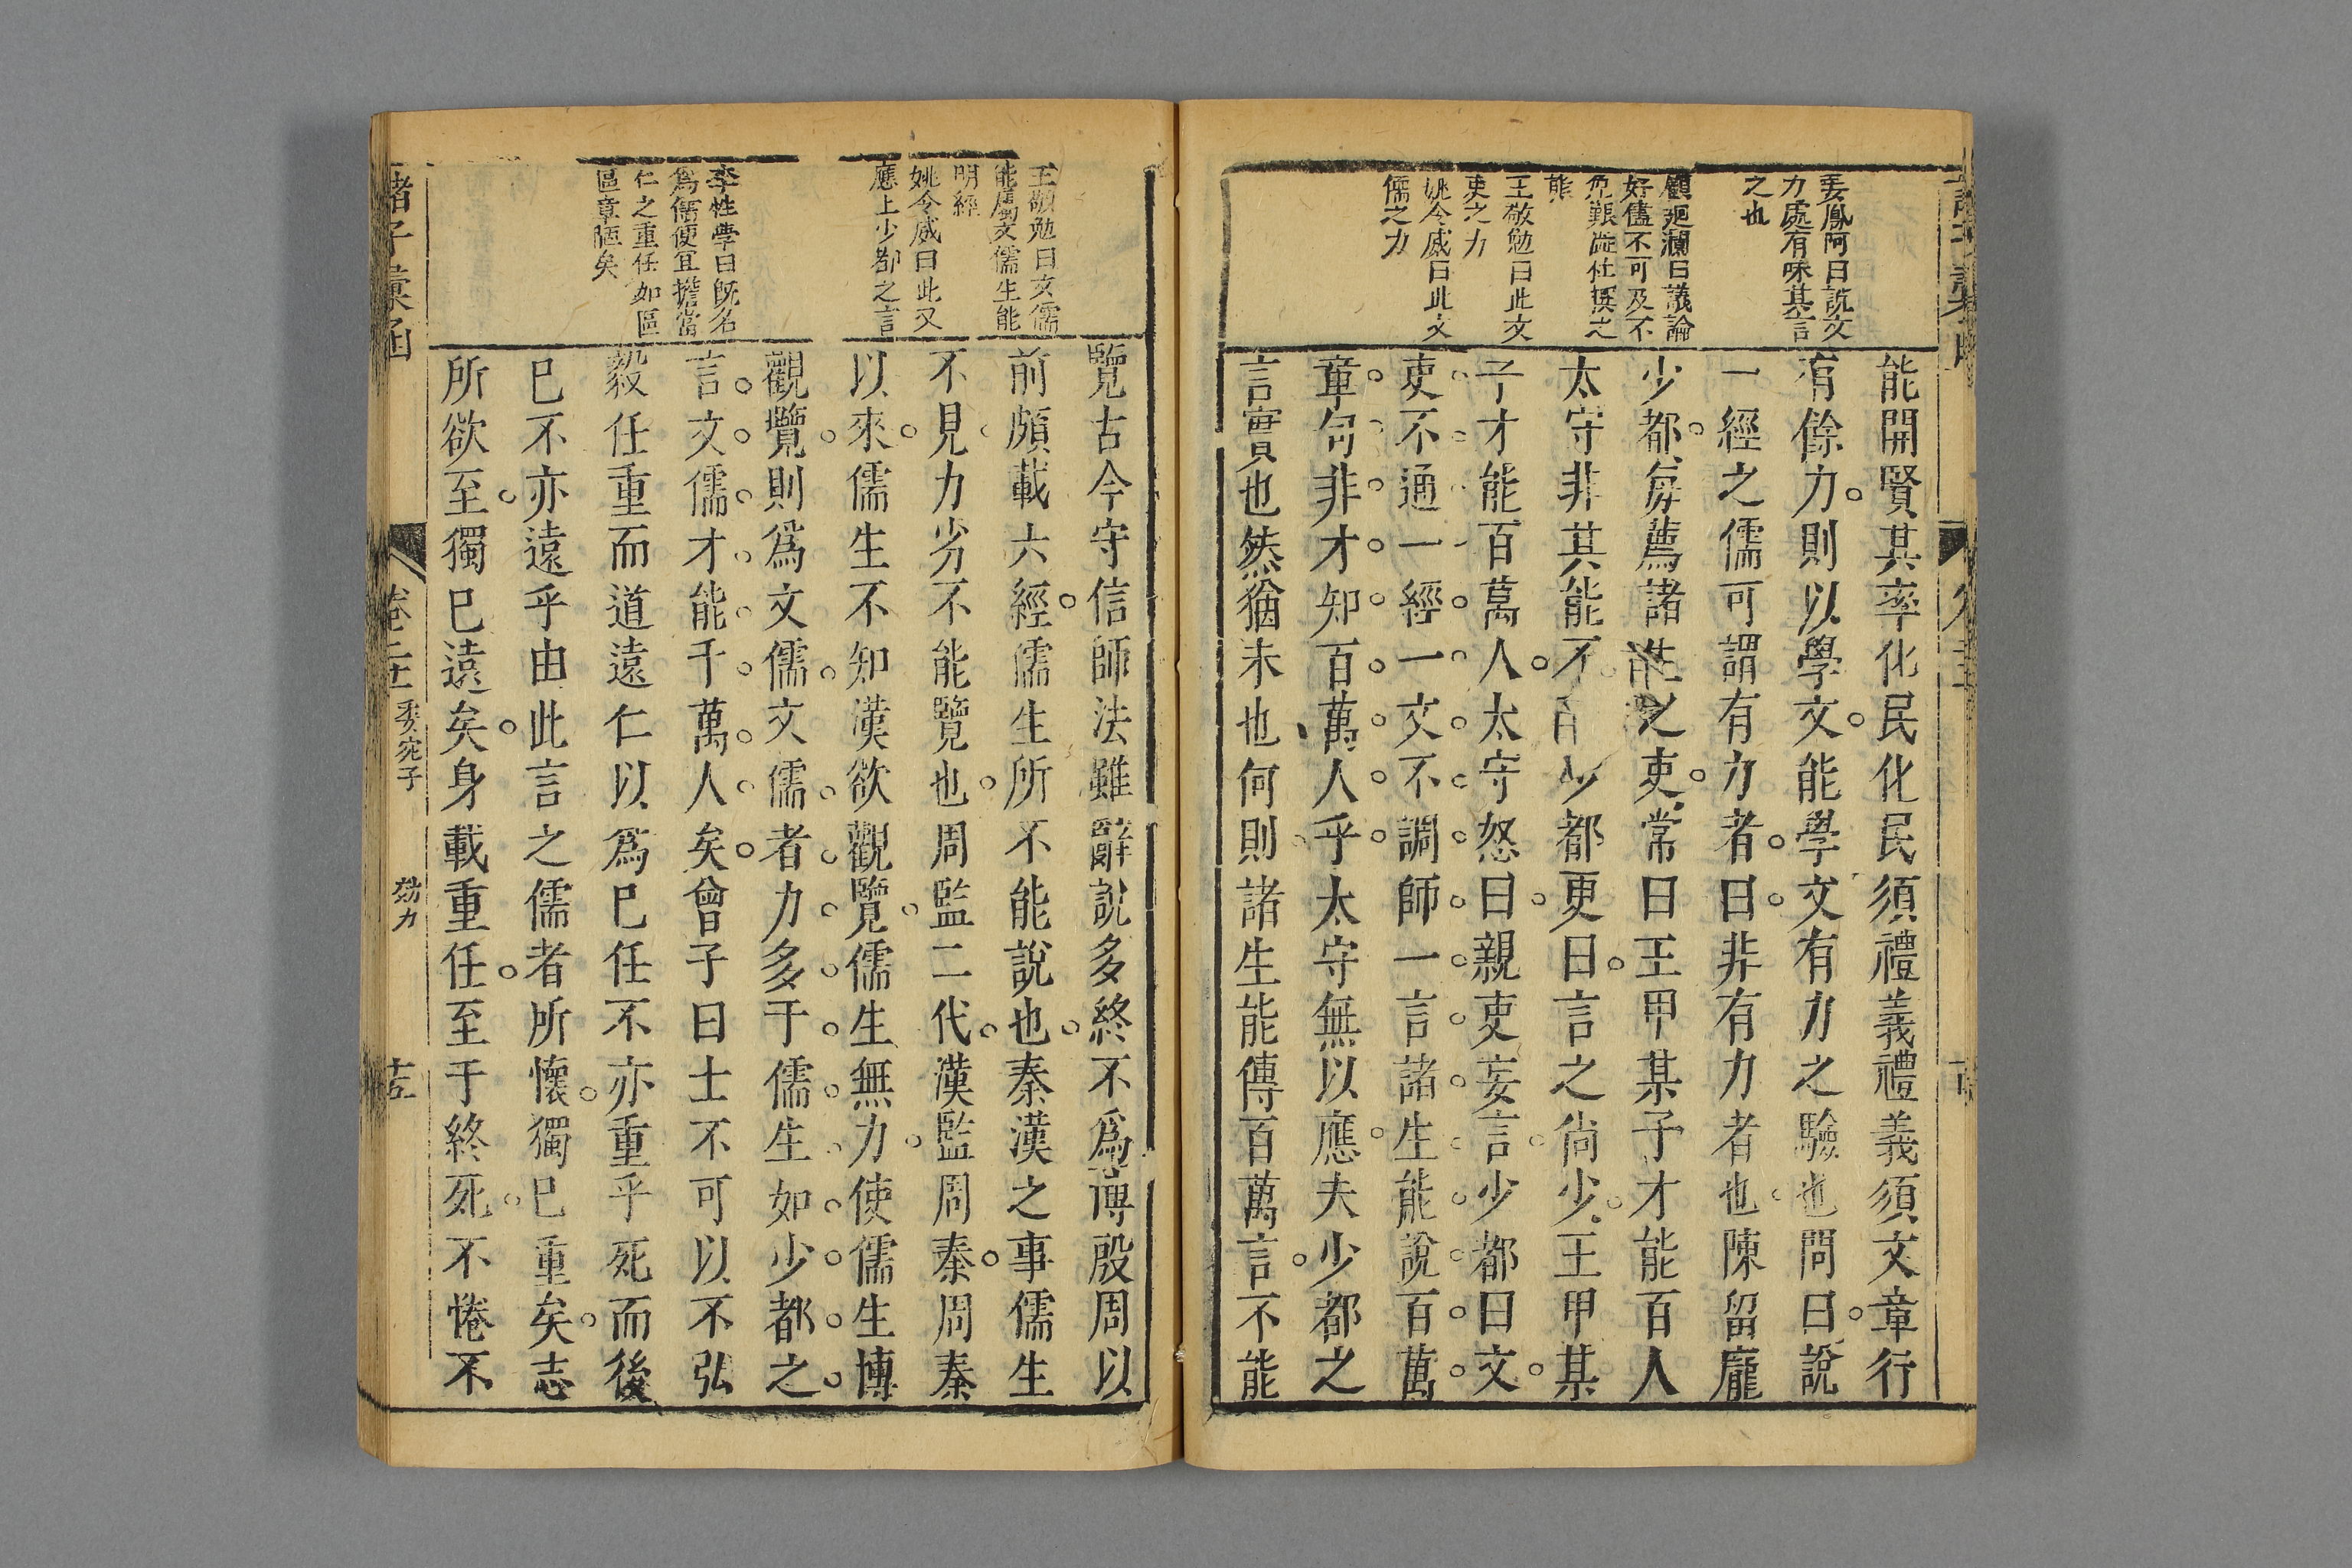 姜鳳阿曰說文
力處有味其言
之也
顧廻瀾曰議論
好儘不可及不
免艱澁杜撰之
態
王敬勉曰此文
吏之力
姚令威曰此文
儒之力
能開賢其率化民化民須禮義禮義須文章行
有餘力則以學文能學文有力之驗也問曰說
一經之儒可謂有力者曰非有力者也陳留龐
少都每薦諸生之吏常曰王甲某子才能百人
太守非其能不 少都更曰言之尙少王甲某
子才能百萬人太守怒曰親吏妄言少都曰文
吏不通一經一文不調師一言諸生能說百萬
章句非才知百萬人乎太守無以應夫少都之
言實也然猶未也何則諸生能傳百萬言不能
王敬勉曰文儒
能屬文儒生能
明經
姚令威曰此又
應上少都之言
李性學曰旣名
爲儒便宜擔當
仁之重任如區
區章陋矣
覽古今守信師法雖辭說多終不爲博殷周以
前頗載六經儒生所不能說也秦漢之事儒生
不見力劣不能覽也周監二代漢監周秦周秦
以來儒生不知漢欲觀覽儒生無力使儒生博
觀覽則爲文儒文儒者力多于儒生如少都之
言文儒才能千萬人矣曾子曰士不可以不弘
毅任重而道遠仁以爲巳任不亦重乎死而後
巳不亦遠乎由此言之儒者所懷獨巳重矣志
所欲至獨巳遠矣身載重任至于終死不惓不
諸子彙函
卷二十 委宛子 効力 十五